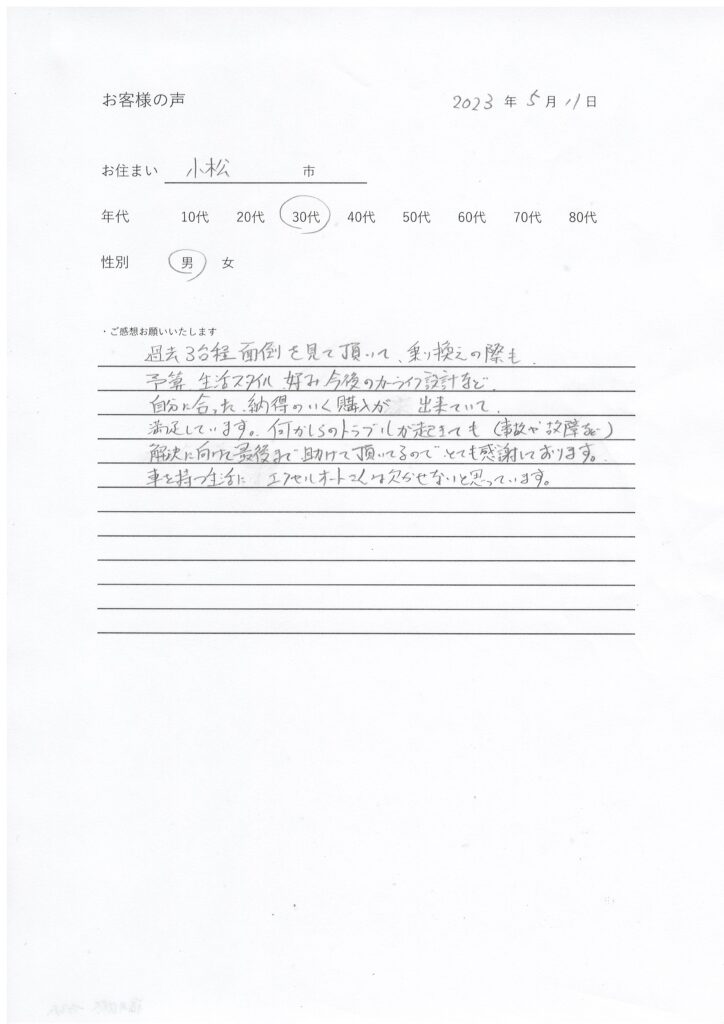 お客様の声
2023 年 5 月 11 日
お住まい 小松 市
年代 10代 20代 30代 40代 50代 60代 70代 80代
性別 男 女
・ご感想お願いいたします
過去3台程面倒を見て頂いて、乗り換えの際も、
予算 生活スタイル 好み 今後のカーライフ設計など、
自分に合った、納得のいく購入が 出来ていて、
満足しています。何かしらのトラブルが起きても(事故や故障など)
解決に向けた最後まで助けて頂いてるので とても感謝しております。
車を持つ生活に エクセルオートさんは欠かせないと思っています。